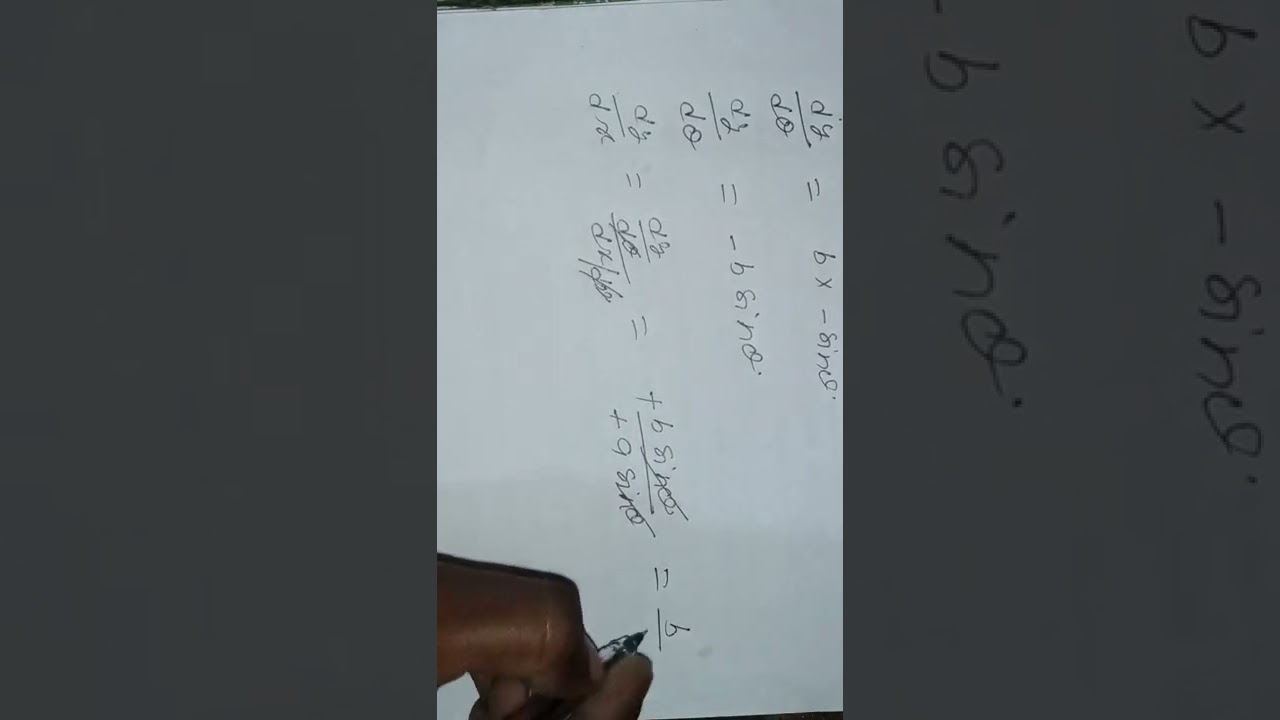 dy/dθ = b x - sinθ.
dy/dθ = - b sinθ.
dy/dx = dy/dθ / dx/dθ = + b sinθ / + a sinθ = b